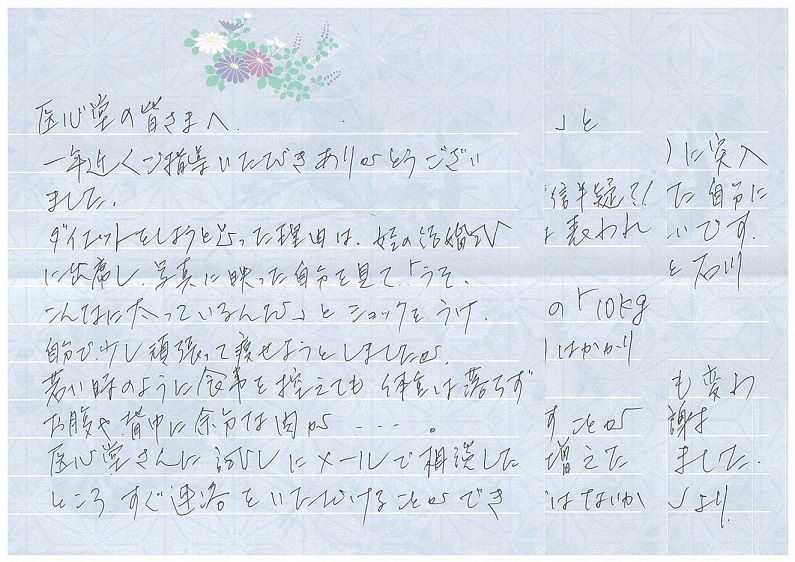 医心堂の皆さまへ.
一年近くご指導いただきありがとうござい
ました.
ダイエットをしようと思った理由は、姪の結婚式
に出席し、写真に映った自分を見て、「うそ、
こんなに太っているんだ」とショックをうけ、
自分で少し頑張って痩せようとしましたが、
若い時のように食事を控えても体重は落ちず
お腹や背中に余分な肉が・・・・。
医心堂さんに試しにメールで相談した
ところ、すぐ連絡をいただけることができ
」と
信半疑?!
表われ
の「10kg
はかかり
すことが
増えた
はないか
に突入
た自分に
いです.
と石川
も変わ
謝は
ました.
より.